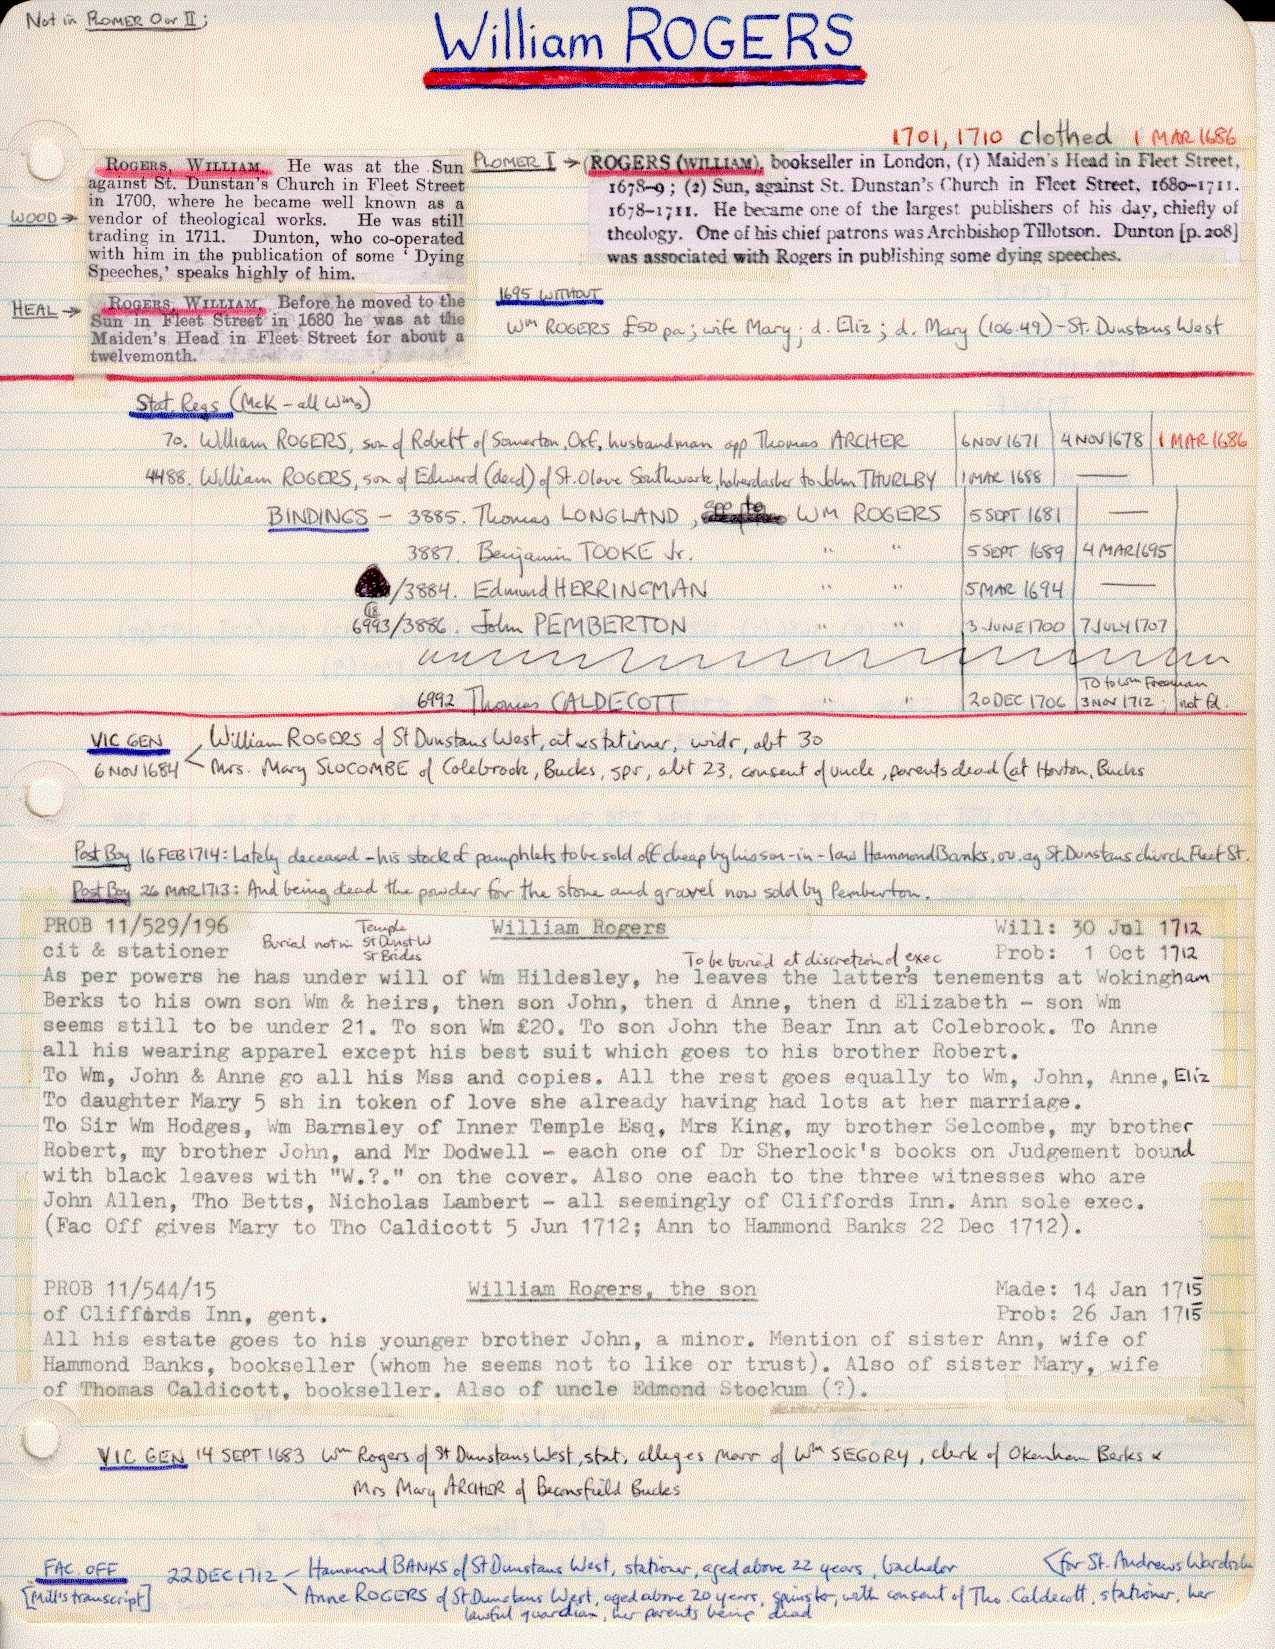 Not in PLOMER O or II;
William ROGERS
1701, 1710 clothed 1 MAR 1686
WOOD →
ROGERS, WILLIAM. He was at the Sun
against St. Dunstan's Church in Fleet Street
in 1700, where he became well known as a
vendor of theological works. He was still
trading in 1711. Dunton, who co-operated
with him in the publication of some 'Dying
Speeches,' speaks highly of him.
PLOMER I →
ROGERS (WILLIAM), bookseller in London, (1) Maiden's Head in Fleet Street,
1678–9; (2) Sun, against St. Dunstan's Church in Fleet Street, 1680–1711.
1678–1711. He became one of the largest publishers of his day, chiefly of
theology. One of his chief patrons was Archbishop Tillotson. Dunton [p. 208]
was associated with Rogers in publishing some dying speeches.
HEAL →
ROGERS, WILLIAM. Before he moved to the
Sun in Fleet Street in 1680 he was at the
Maiden's Head in Fleet Street for about a
twelvemonth.
1695 WITHOUT
Wm ROGERS £50 pa; wife Mary; d. Eliz; d. Mary (106.49) - St. Dunstans West
Stat Regs (McK - all Wms)
70. William ROGERS, son of Robert of Somerton, Oxf, husbandman app Thomas ARCHER 6 NOV 1671 4 NOV 1678 1 MAR 1686
4488. William ROGERS, son of Edward (dead) of St. Olave Southwark, haberdasher to John THURLBY 1 MAR 1688 —
BINDINGS - 3885. Thomas LONGLAND, to WM ROGERS 5 SEPT 1681 —
3887. Benjamin TOOKE Jr. " " 5 SEPT 1689 4 MAR 1695
/3884. Edmund HERRINGMAN " " 5 MAR 1694 —
6993/3886. John PEMBERTON " " 3 JUNE 1700 7 JULY 1707
6992 Thomas CALDECOTT " " 20 DEC 1706 TO to Wm Freeman
3 NOV 1712; not fd.
VIC GEN William ROGERS of St Dunstans West, cit & stationer, widr, abt 30
6 NOV 1684 Mrs. Mary SLOCOMBE of Colebrook, Bucks, spr, abt 23, consent of uncle, parents dead (at Horton, Bucks
Post Boy 16 FEB 1714: Lately deceased - his stock of pamphlets to be sold off cheap by his son-in-law Hammond Banks, ov. ag St. Dunstans church Fleet St.
Post Boy 26 MAR 1713: And being dead the powder for the stone and gravel now sold by Pemberton.
PROB 11/529/196 William Rogers Will: 30 Jul 1712
cit & stationer Burial not in Temple St Dunst W St Brides Prob: 1 Oct 1712
To be buried at discretion of exec
As per powers he has under will of Wm Hildesley, he leaves the latter's tenements at Wokingham
Berks to his own son Wm & heirs, then son John, then d Anne, then d Elizabeth - son Wm
seems still to be under 21. To son Wm £20. To son John the Bear Inn at Colebrook. To Anne
all his wearing apparel except his best suit which goes to his brother Robert.
To Wm, John & Anne go all his Mss and copies. All the rest goes equally to Wm, John, Anne, Eliz
To daughter Mary 5 sh in token of love she already having had lots at her marriage.
To Sir Wm Hodges, Wm Barnsley of Inner Temple Esq, Mrs King, my brother Selcombe, my brother
Robert, my brother John, and Mr Dodwell - each one of Dr Sherlock's books on Judgement bound
with black leaves with "W.?." on the cover. Also one each to the three witnesses who are
John Allen, Tho Betts, Nicholas Lambert - all seemingly of Cliffords Inn. Ann sole exec.
(Fac Off gives Mary to Tho Caldicott 5 Jun 1712; Ann to Hammond Banks 22 Dec 1712).
PROB 11/544/15 William Rogers, the son Made: 14 Jan 1715
of Cliffords Inn, gent. Prob: 26 Jan 1715
All his estate goes to his younger brother John, a minor. Mention of sister Ann, wife of
Hammond Banks, bookseller (whom he seems not to like or trust). Also of sister Mary, wife
of Thomas Caldicott, bookseller. Also of uncle Edmond Stockum (?).
VIC GEN 14 SEPT 1683 Wm Rogers of St Dunstans West, stat, alleges marr of Wm SEGORY, clerk of Okenham Berks &
Mrs Mary ARCHER of Beconsfield Bucks
FAC OFF 22 DEC 1712 Hammond BANKS of St Dunstans West, stationer, aged above 22 years, bachelor <for St. Andrews Wardrobe
[Mill's transcript] Anne ROGERS of St Dunstans West, aged above 20 years, spinster, with consent of Tho. Caldecott, stationer, her
lawful guardian, her parents being dead